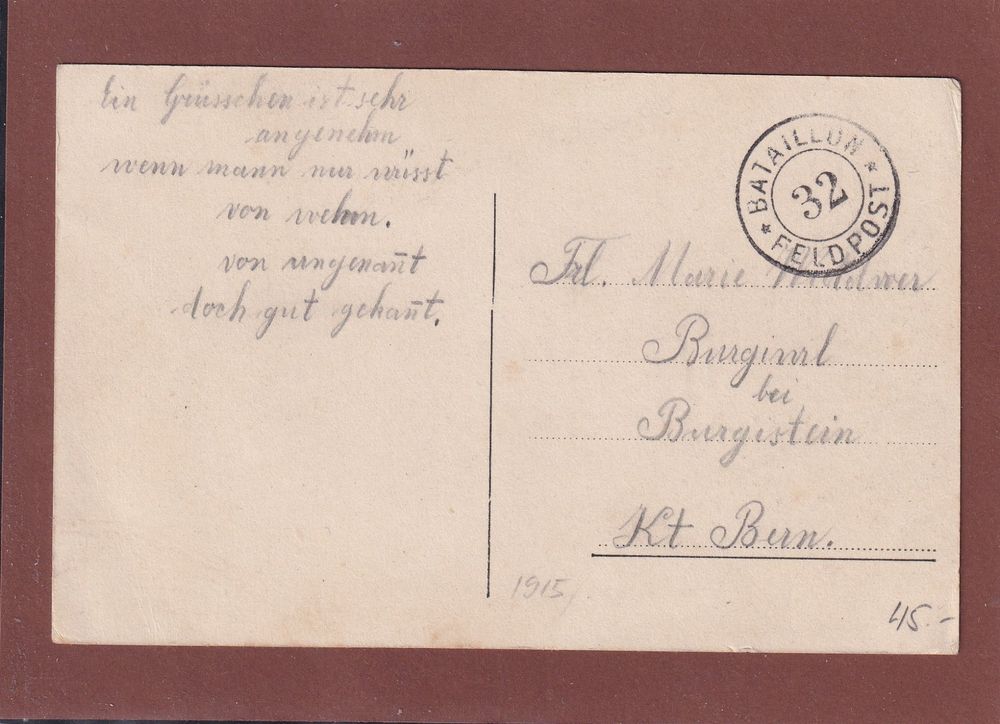 Ein Grüsschen ist sehr
angenehm
wenn mann nur wüsst
von wehm.
von ungenan̄t
doch gut gekan̄t.
* BATAILLON * FELDPOST
32
Frl. Marie
bei
Burgistein
Kt Bern.
1915
45.-